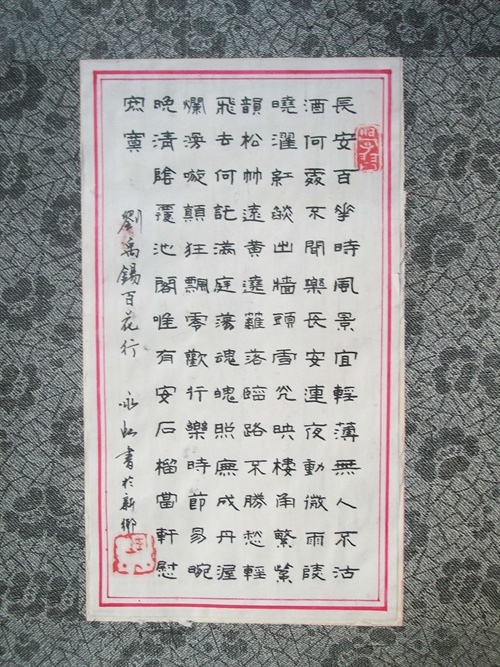 長安百華時風景宜輕薄無人不沽
酒何處不聞樂長安連夜動微雨陵
曉濯紅燄出牆頭雪光映樓角繁紫
韻松竹遠黃遶籬落臨路不勝愁輕
飛去何託滿庭蕩魂魄照廡成丹渥
爛漫顛狂飄零歡行樂時節易晼
晚清陰覆池閣唯有安石榴當軒慰
寂寞
劉禹錫百花行 永虹書於新鄉